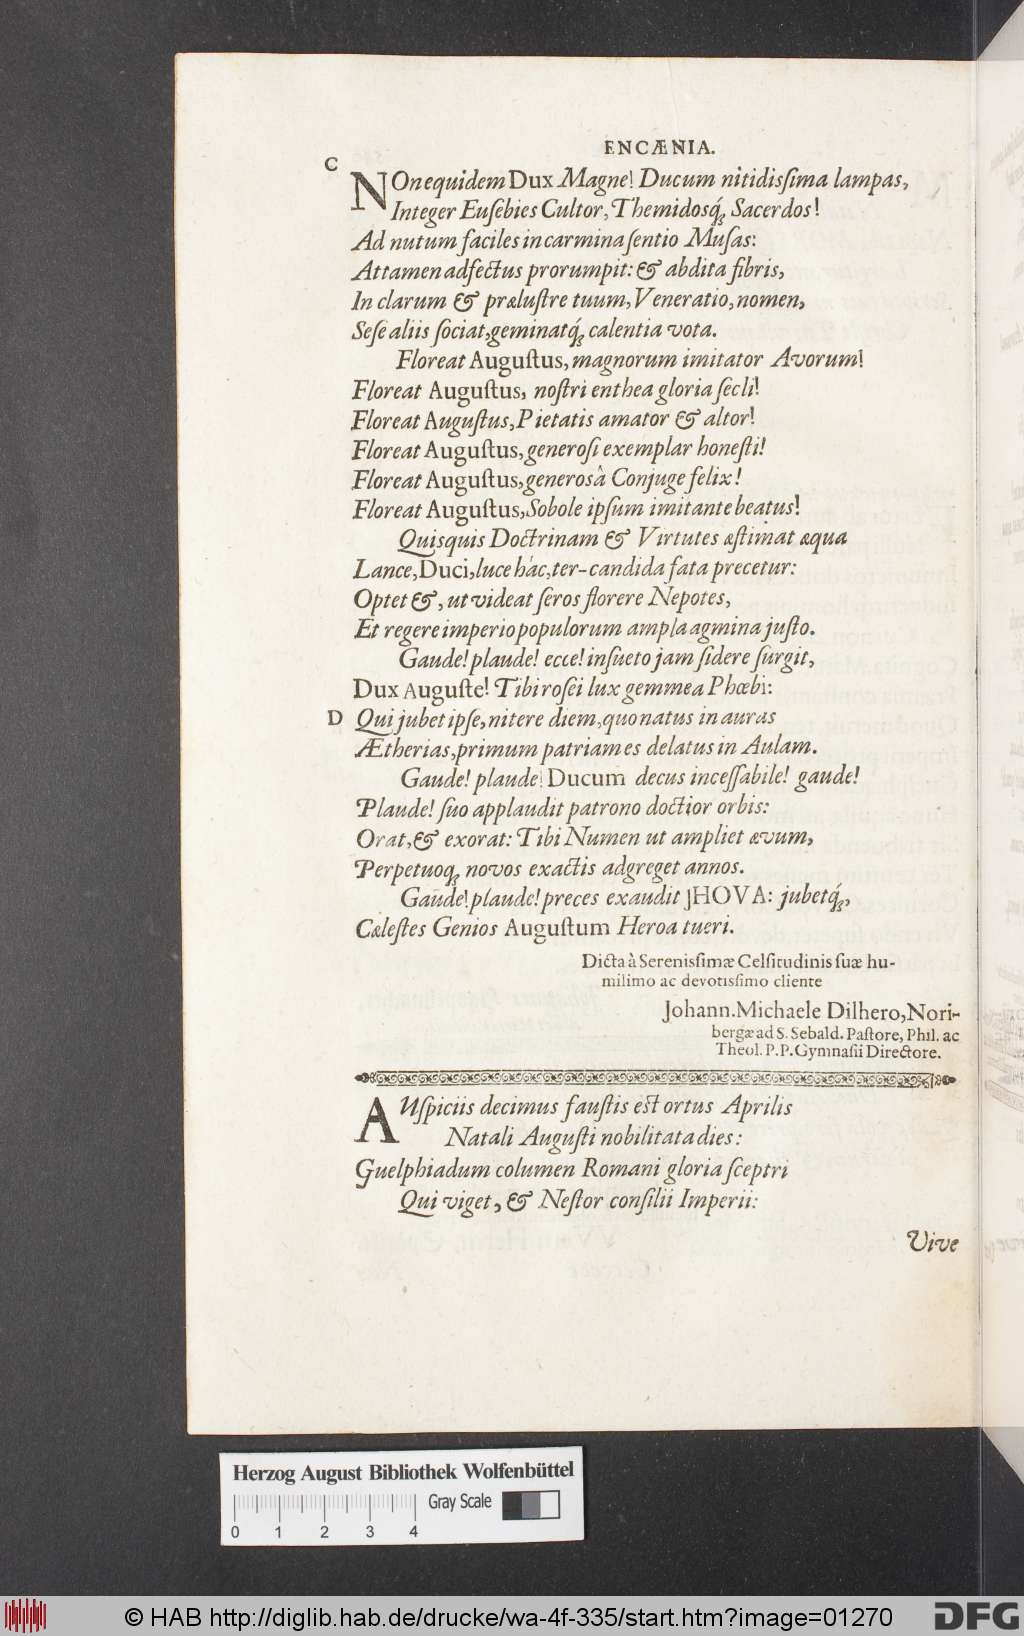 ENCÆNIA.
C
NOnequidem Dux Magne! Ducum nitidisſima lampas,
Integer Euſebies Cultor, Themidosq́; Sacerdos!
Ad nutum faciles in carmina ſentio Muſas:
Attamen adfectus prorumpit: & abdita fibris,
In clarum & præluſtre tuum, Veneratio, nomen,
Seſe aliis ſociat, geminatq́; calentia vota.
Floreat Auguſtus, magnorum imitator Avorum!
Floreat Auguſtus, noſtri enthea gloria ſecli!
Floreat Auguſtus, Pietatis amator & altor!
Floreat Auguſtus, generoſi exemplar honeſti!
Floreat Auguſtus, generosâ Conjuge felix!
Floreat Auguſtus, Sobole ipſum imitante beatus!
Quisquis Doctrinam & Virtutes æſtimat æqua
Lance, Duci, luce hác, ter-candida fata precetur:
Optet &, ut videat ſeros florere Nepotes,
Et regere imperio populorum ampla agmina juſto.
Gaude! plaude! ecce! inſueto jam ſidere ſurgit,
Dux Auguſte! Tibi roſei lux gemmea Phœbi:
D Qui jubet ipſe, nitere diem, quo natus in auras
Ætherias, primum patriam es delatus in Aulam.
Gaude! plaude! Ducum decus inceſſabile! gaude!
Plaude! ſuo applaudit patrono doctior orbis:
Orat, & exorat: Tibi Numen ut ampliet ævum,
Perpetuoq; novos exactis adgreget annos.
Gaude! plaude! preces exaudit JHOVA: jubetq́;,
Cæleſtes Genios Auguſtum Heroa tueri.
Dicta à Serenisſimæ Celſitudinis ſuæ hu-
milimo ac devotisſimo cliente
Johann. Michaele Dilhero, Nori-
bergæ ad S. Sebald. Paſtore, Phil. ac
Theol. P. P. Gymnaſii Directore.
AUſpiciis decimus fauſtis eſt ortus Aprilis
Natali Auguſti nobilitata dies:
Guelphiadum columen Romani gloria ſceptri
Qui viget, & Neſtor conſilii Imperii:
Vive
Herzog August Bibliothek Wolfenbüttel
Gray Scale
0 1 2 3 4
© HAB http://diglib.hab.de/drucke/wa-4f-335/start.htm?image=01270
DFG